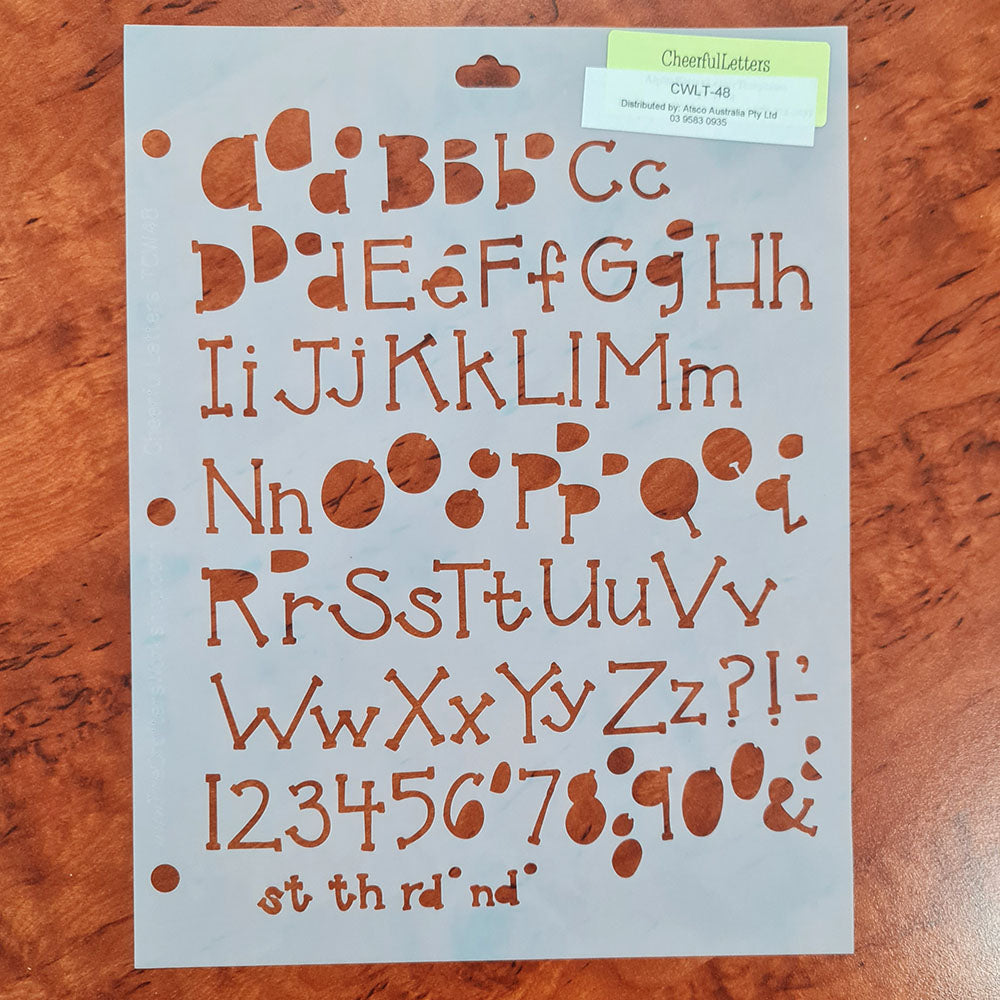 CheerfulLetters
CWLT-48
Distributed by: Atsco Australia Pty Ltd
03 9583 0935
a a B b C c
D d E e F f G g H h
I i J j K k L l M m
N n O o P p Q q
R r S s T t U u V v
W w X x Y y Z z ? ! ' -
1 2 3 4 5 6 7 8 9 0 &
st th rd nd